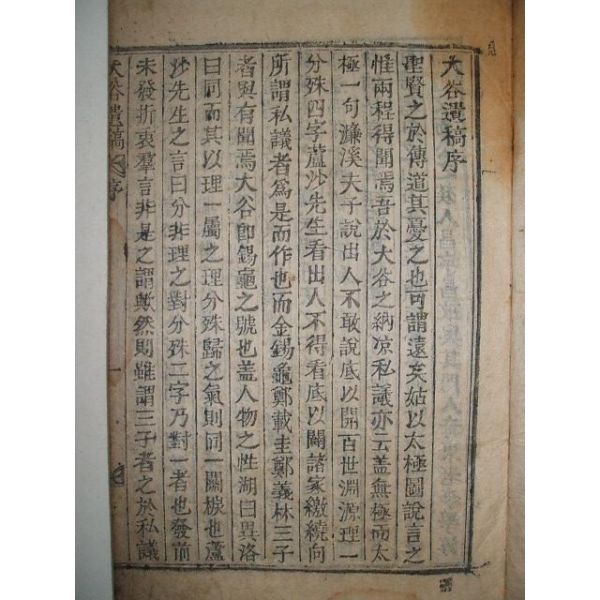 大谷遺稿序
聖賢之於傳道其憂之也可謂遠矣姑以太極圖說言之
惟兩程得聞焉吾於大谷之納凉私議亦云盖無極而太
極一句濂溪夫子說出人不敢說底以開百世淵源理一
分殊四字蘆沙先生看出人不得看底以闢諸家繳繞向
所謂私議者爲是而作也而金錫龜鄭載圭鄭義林三子
者與有聞焉大谷卽錫龜之號也盖人物之性湖曰異洛
曰同而其以理一屬之理分殊歸之氣則同一關棙也蘆
沙先生之言曰分非理之對分殊二字乃對一者也發前
未發折衷羣言非是之謂歟然則雖謂三子者之於私議
大谷遺稿 序 一